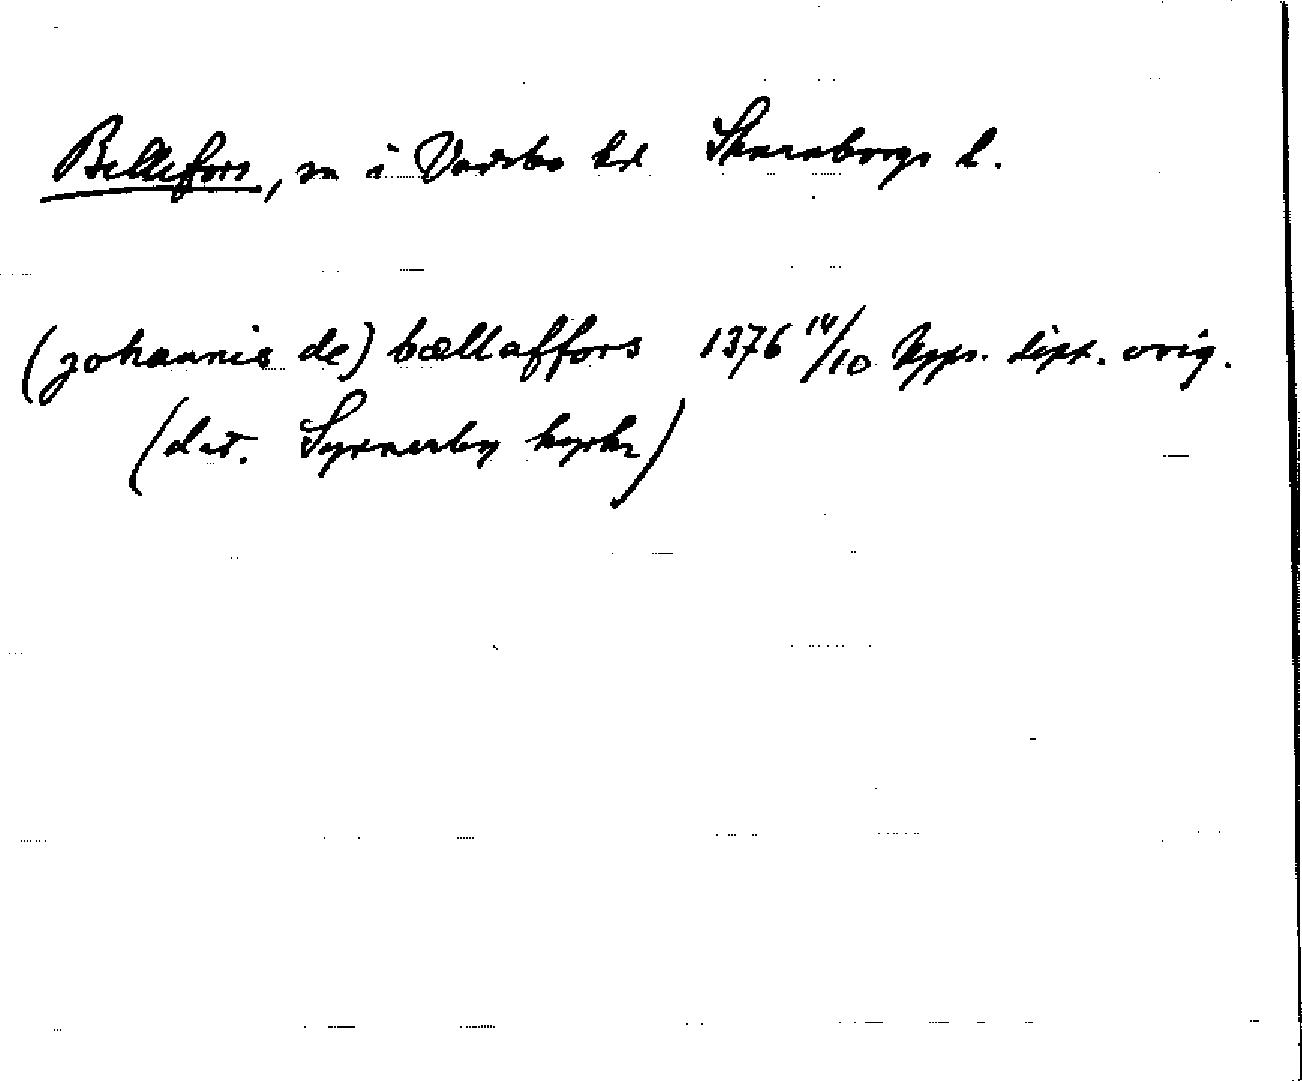 Bellefors, sn i Vadsbo hd Skaraborgs l.
(johannis de) bællaffors 1376 14/10 Upps. dipl. orig.
(dat. Synnerby kyrke)